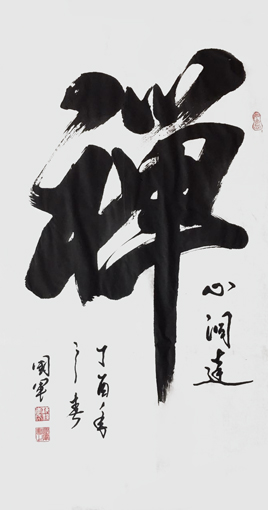 禅
心洞達
丁酉年
之春
國軍